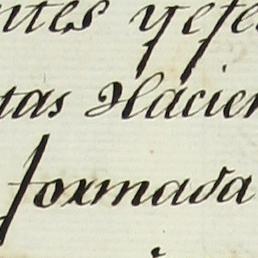 ntes y efe
tas Hacien
formada